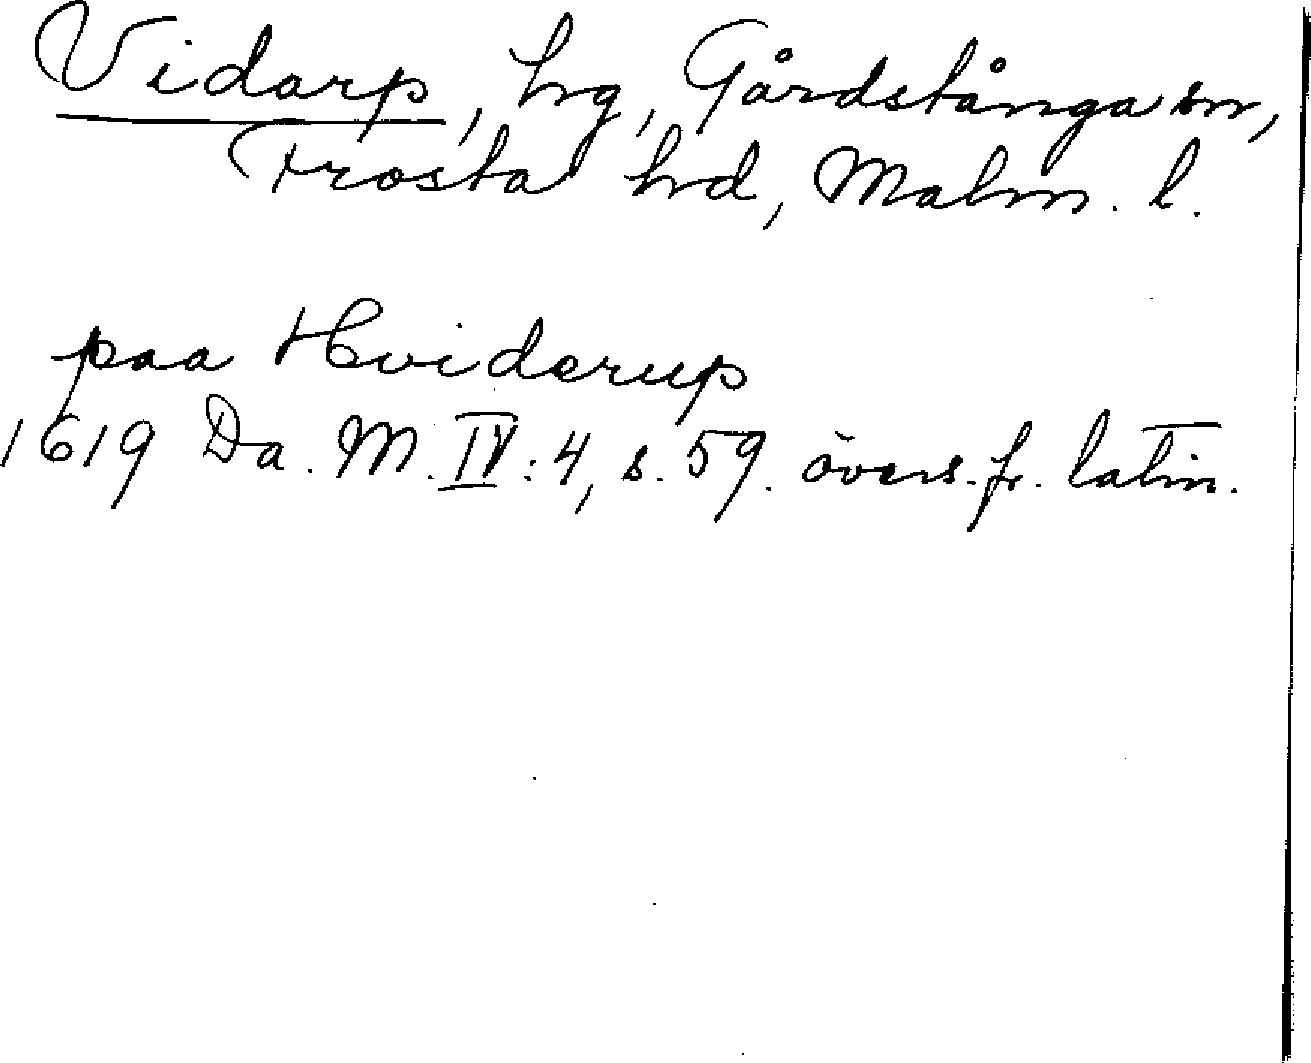 Vidarp, hg, Gårdstånga sn,
Frosta hd, Malm. l.
paa Hviderup
1619 Da. M. IV:4, s. 59. övers. fr. latin.